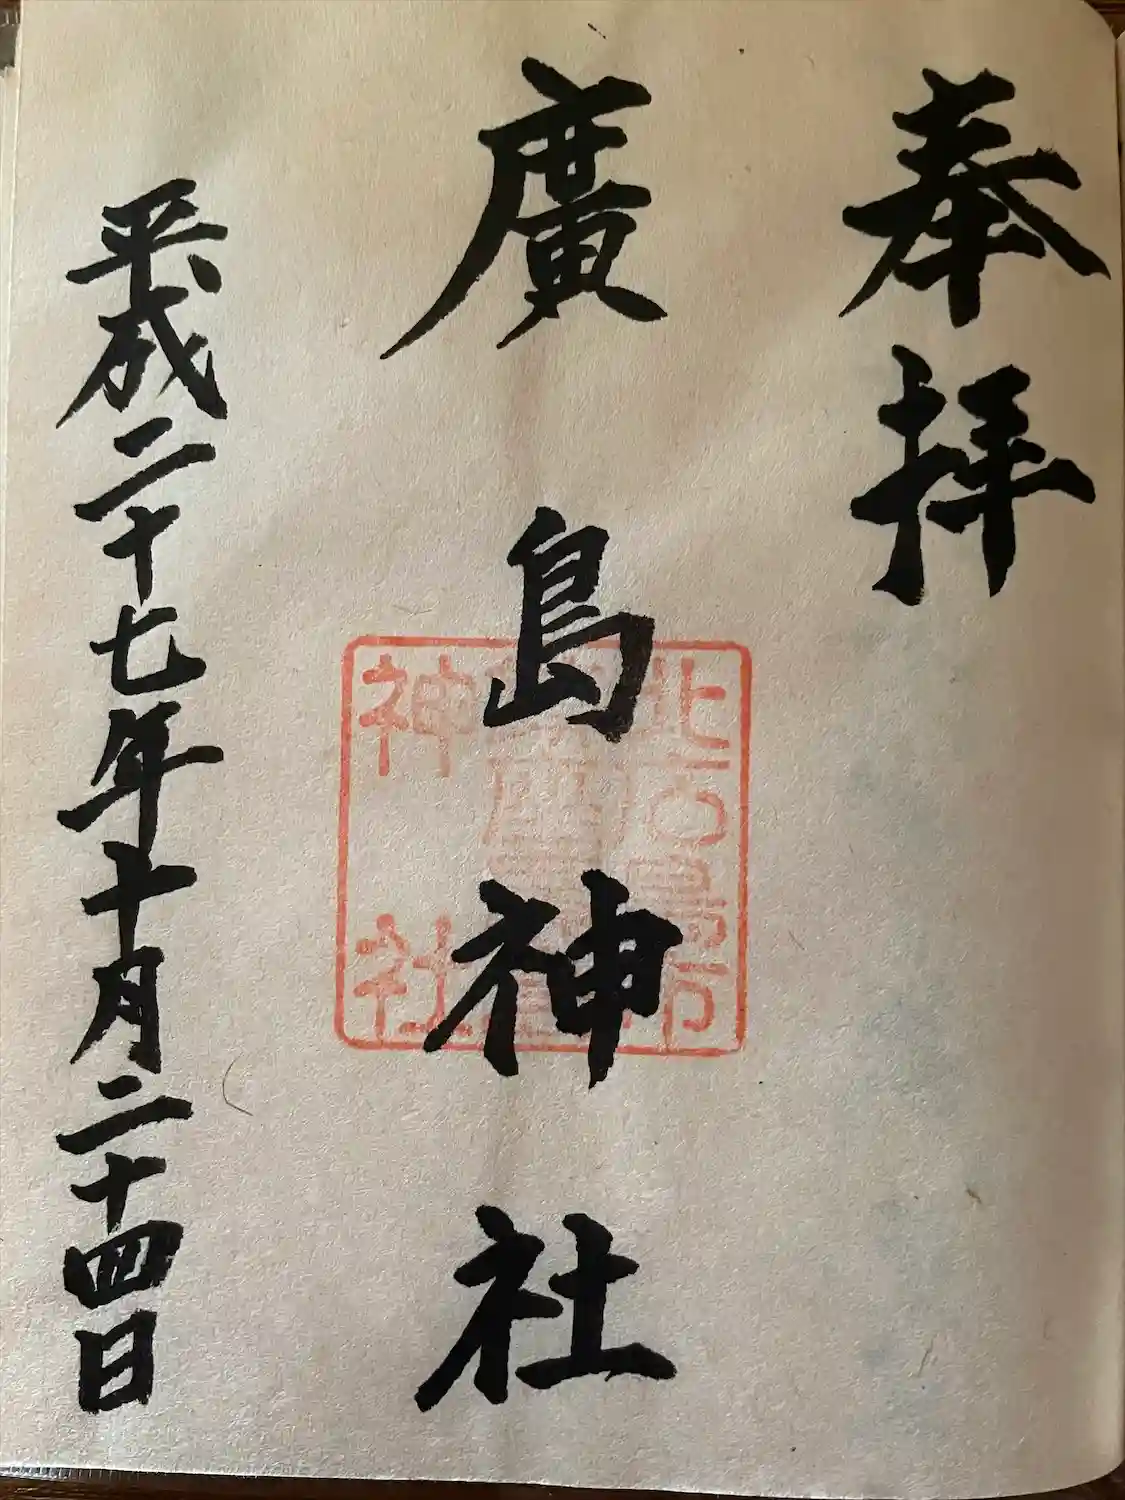 奉拝
廣島神社
平成二十七年十月二十四日
北広島市
廣島
神社